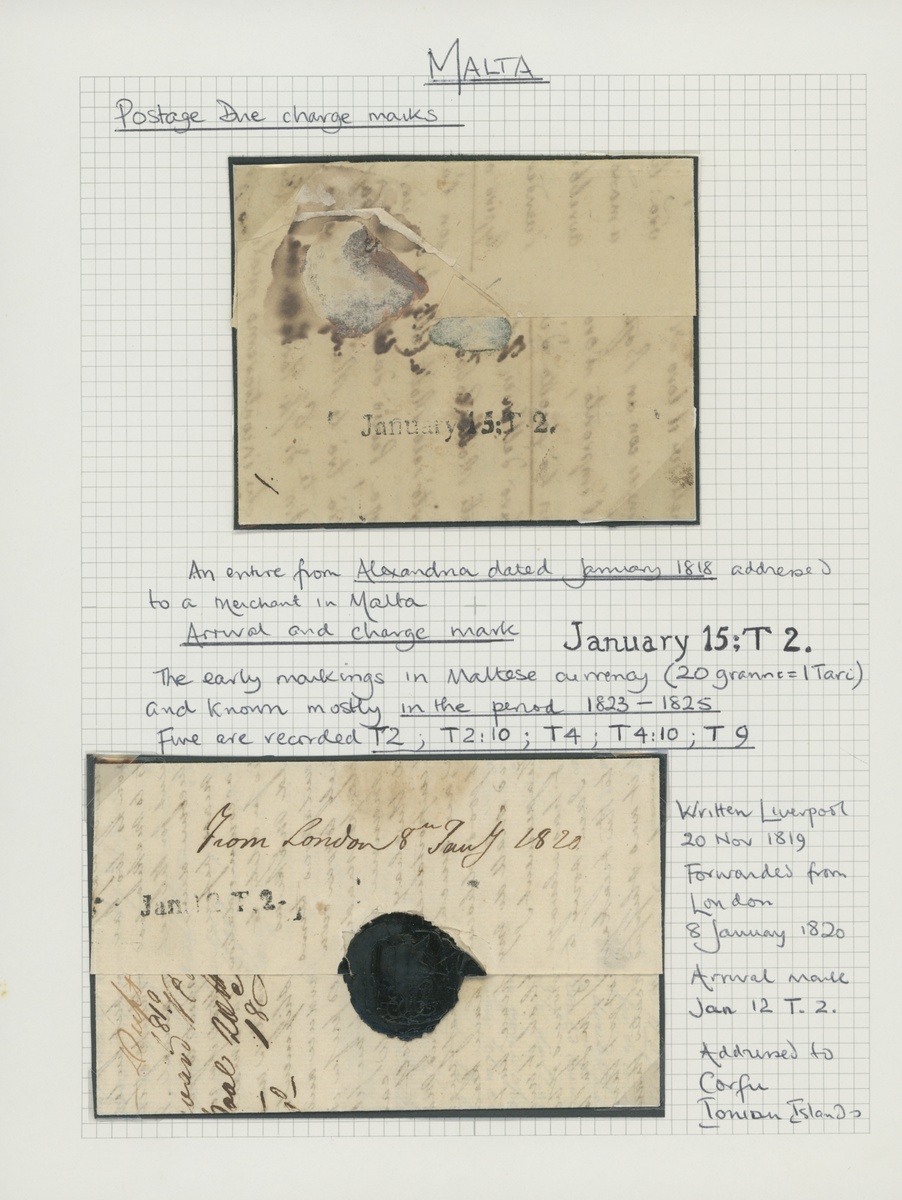 MALTA
Postage Due charge marks
January 15:T 2.
An entire from Alexandria dated January 1818 addressed
to a merchant in Malta
Arrival and charge mark
January 15:T 2.
The early markings in Maltese currency (20 granne=1 Tari)
and known mostly in the period 1823-1825
Five are recorded T2 ; T2:10 ; T4 ; T4:10 ; T9
From London 8th Jany 1820
Jan 12 T. 2.
Written Liverpool
20 Nov 1819
Forwarded from
London
8 January 1820
Arrival mark
Jan 12 T. 2.
Addressed to
Corfu
Ionian Islands
1819